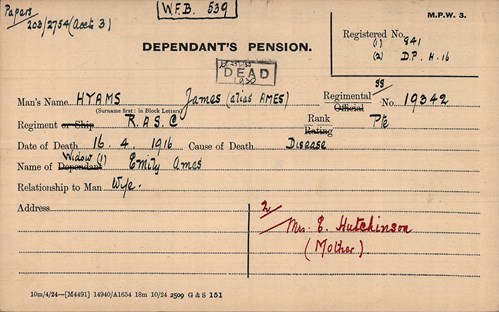 Papers
203/2754 (Accts 3)
W.F.B. 539
M.P.W. 3.
Registered No.
(1) 841
(2) D.P. H.16
DEPENDANT'S PENSION.
DEAD
Man's Name HYAMS James (alias AMES) Regimental Official No. SS 19342
(Surname first: in Block Letters)
Regiment or Ship R.A.S.C Rank Rating Pte
Date of Death 16. 4. 1916 Cause of Death Disease
Name of Dependant Widow (1) Emily Ames
Relationship to Man Wife.
Address
2/ Mrs. E. Hutchinson
(Mother)
10m/4/24—[M4491] 14940/A1654 18m 10/24 2509 G & S 151